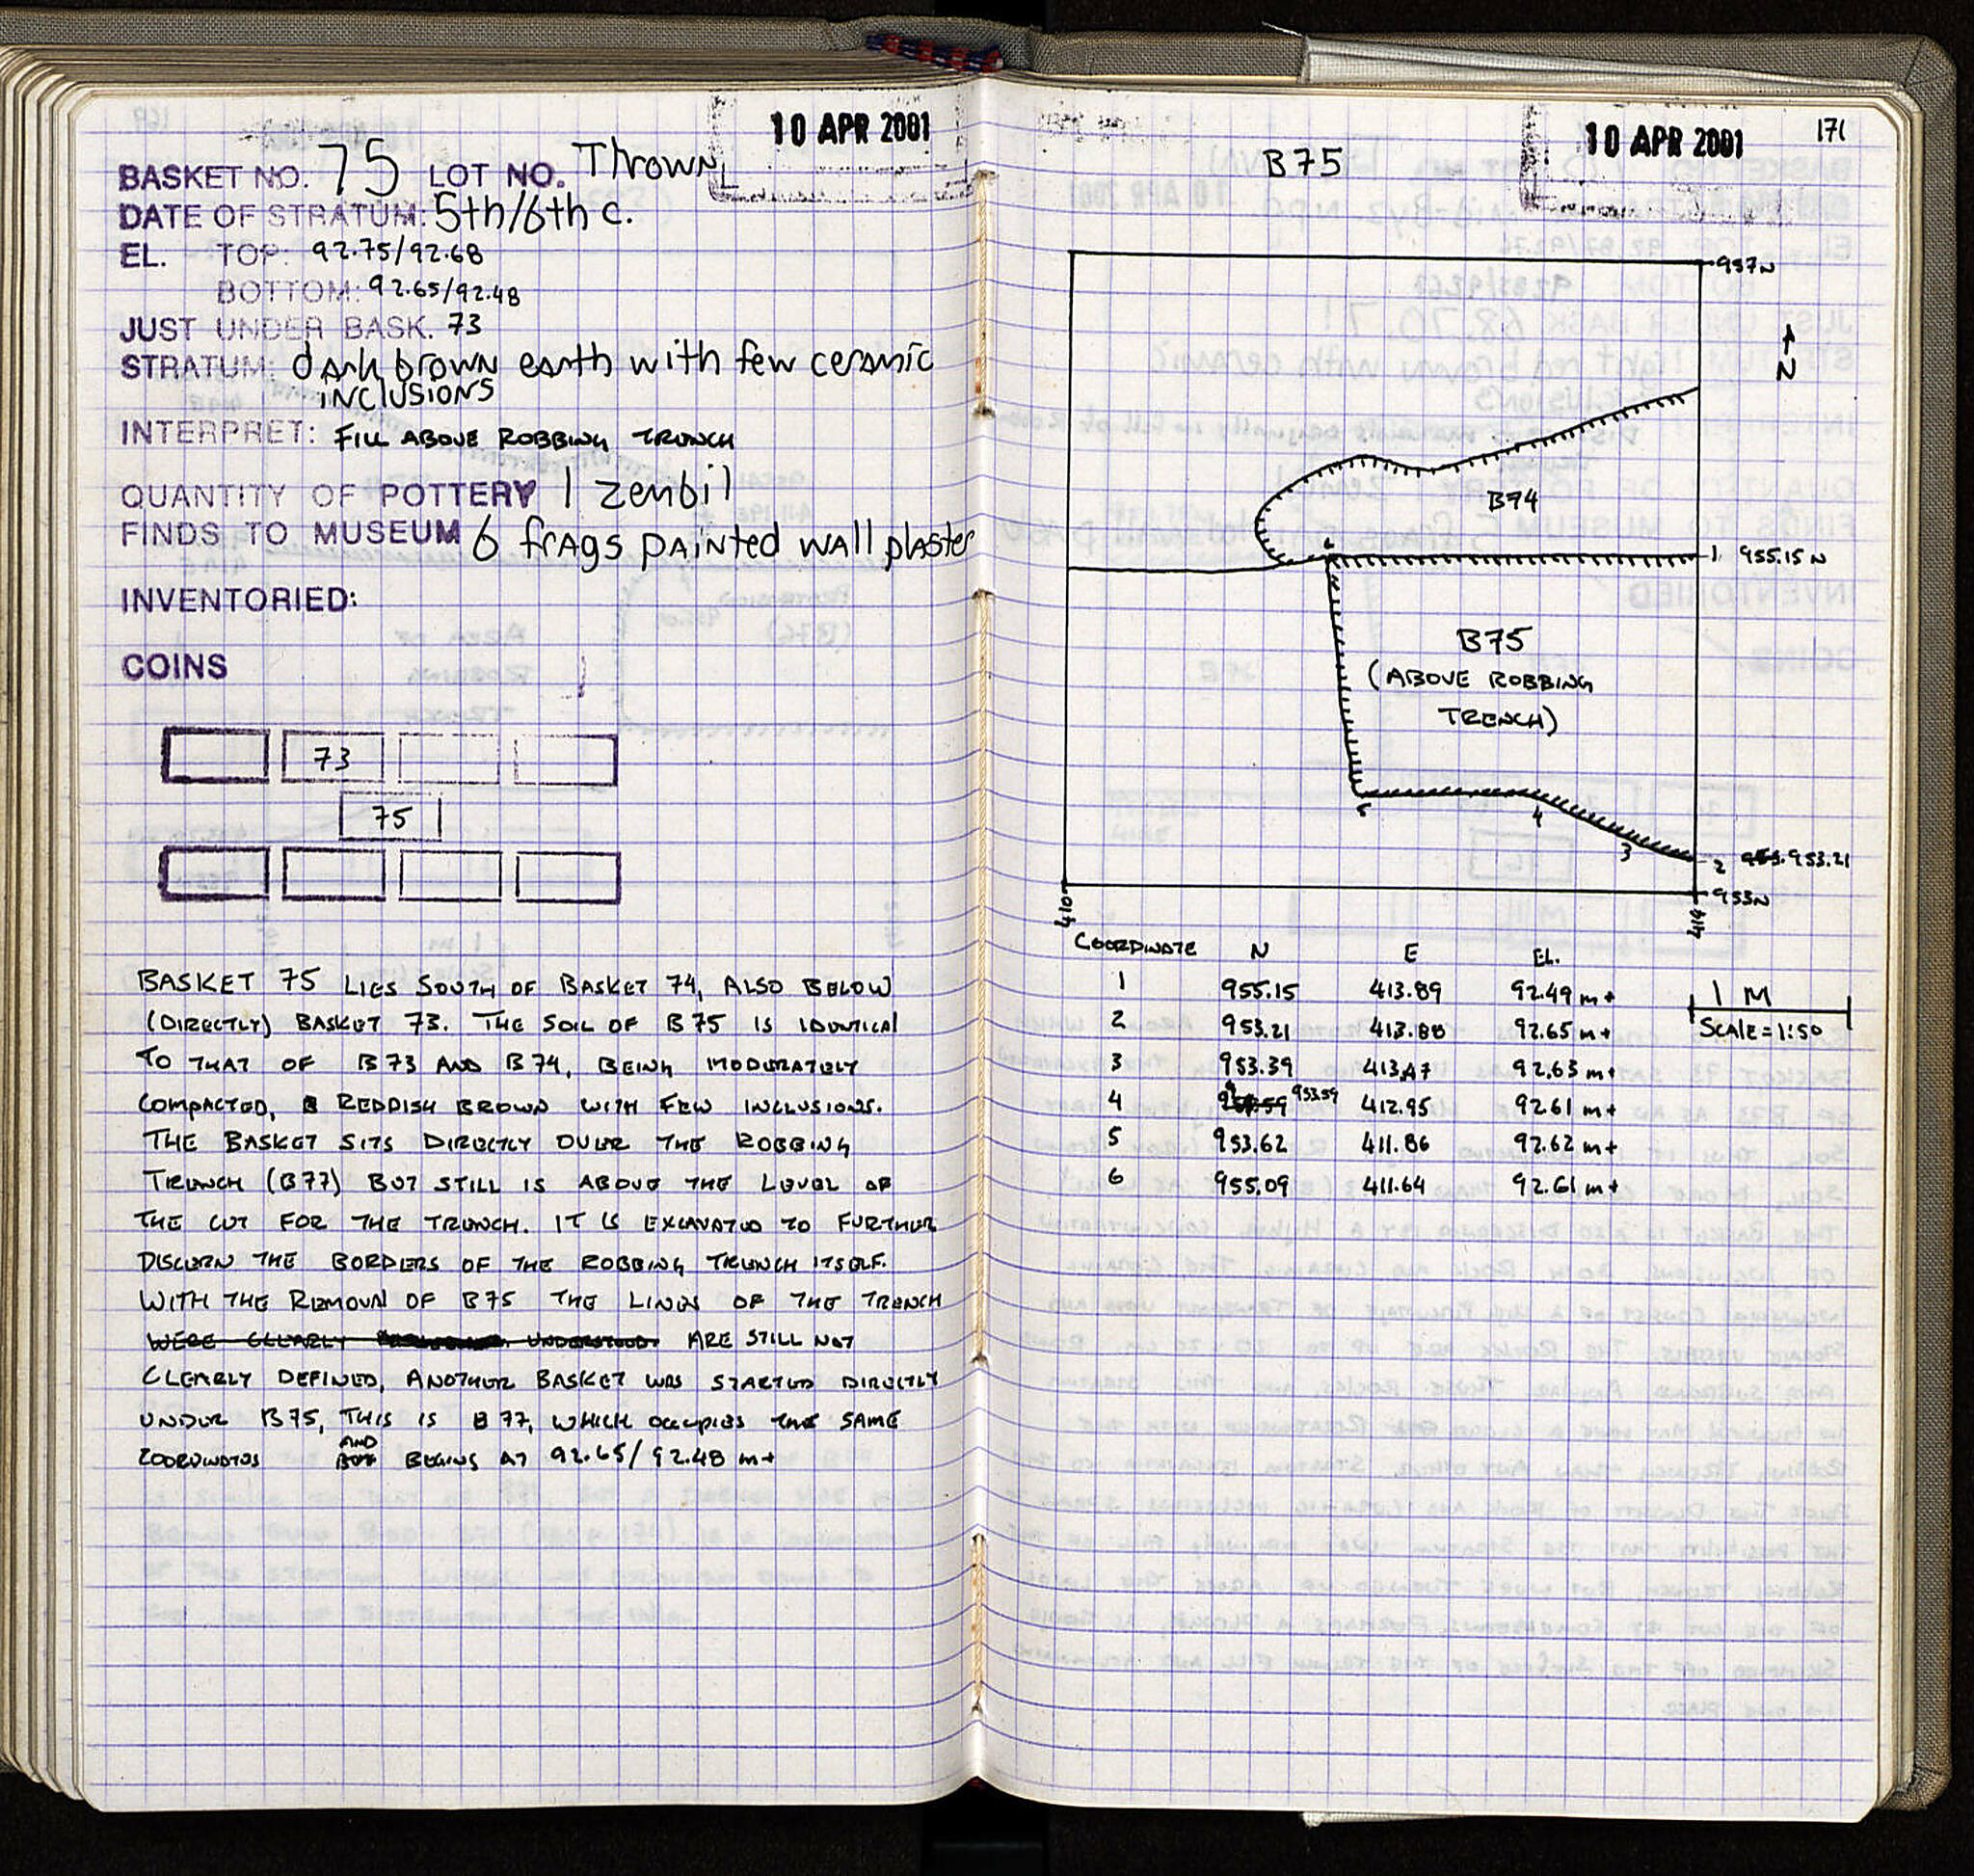 10 APR 2001
BASKET NO. 75 LOT NO. Thrown
DATE OF STRATUM: 5th/6th c.
EL. TOP: 92.75/92.68
BOTTOM: 92.65/92.48
JUST UNDER BASK. 73
STRATUM: dark brown earth with few ceramic
inclusions
INTERPRET: FILL ABOVE ROBBING TRENCH
QUANTITY OF POTTERY 1 zembil
FINDS TO MUSEUM 6 frags painted wall plaster
INVENTORIED:
COINS
73
75
BASKET 75 LIES SOUTH OF BASKET 74, ALSO BELOW
(DIRECTLY) BASKET 73. THE SOIL OF B75 IS IDENTICAL
TO THAT OF B73 AND B74, BEING MODERATELY
COMPACTED, REDDISH BROWN WITH FEW INCLUSIONS.
THE BASKET SITS DIRECTLY OVER THE ROBBING
TRENCH (B77) BUT STILL IS ABOVE THE LEVEL OF
THE CUT FOR THE TRENCH. IT IS EXCAVATED TO FURTHER
DISCERN THE BORDERS OF THE ROBBING TRENCH ITSELF.
WITH THE REMOVAL OF B75 THE LINES OF THE TRENCH
WERE CLEARLY UNDERSTOOD. ARE STILL NOT
CLEARLY DEFINED, ANOTHER BASKET WAS STARTED DIRECTLY
UNDER B75, THIS IS B77, WHICH OCCUPIES THE SAME
COORDINATES AND BEGINS AT 92.65/92.48 m+
10 APR 2001
171
B75
957N
N
B74
6
1 955.15 N
B75
(ABOVE ROBBING
TRENCH)
5
4
3
2 953.21
953N
410
414
COORDINATE N E EL.
1 955.15 413.89 92.49 m+
2 953.21 413.88 92.65 m+
3 953.39 413.47 92.63 m+
4 953.59 412.95 92.61 m+
5 953.62 411.86 92.62 m+
6 955.09 411.64 92.61 m+
1 M
SCALE = 1:50